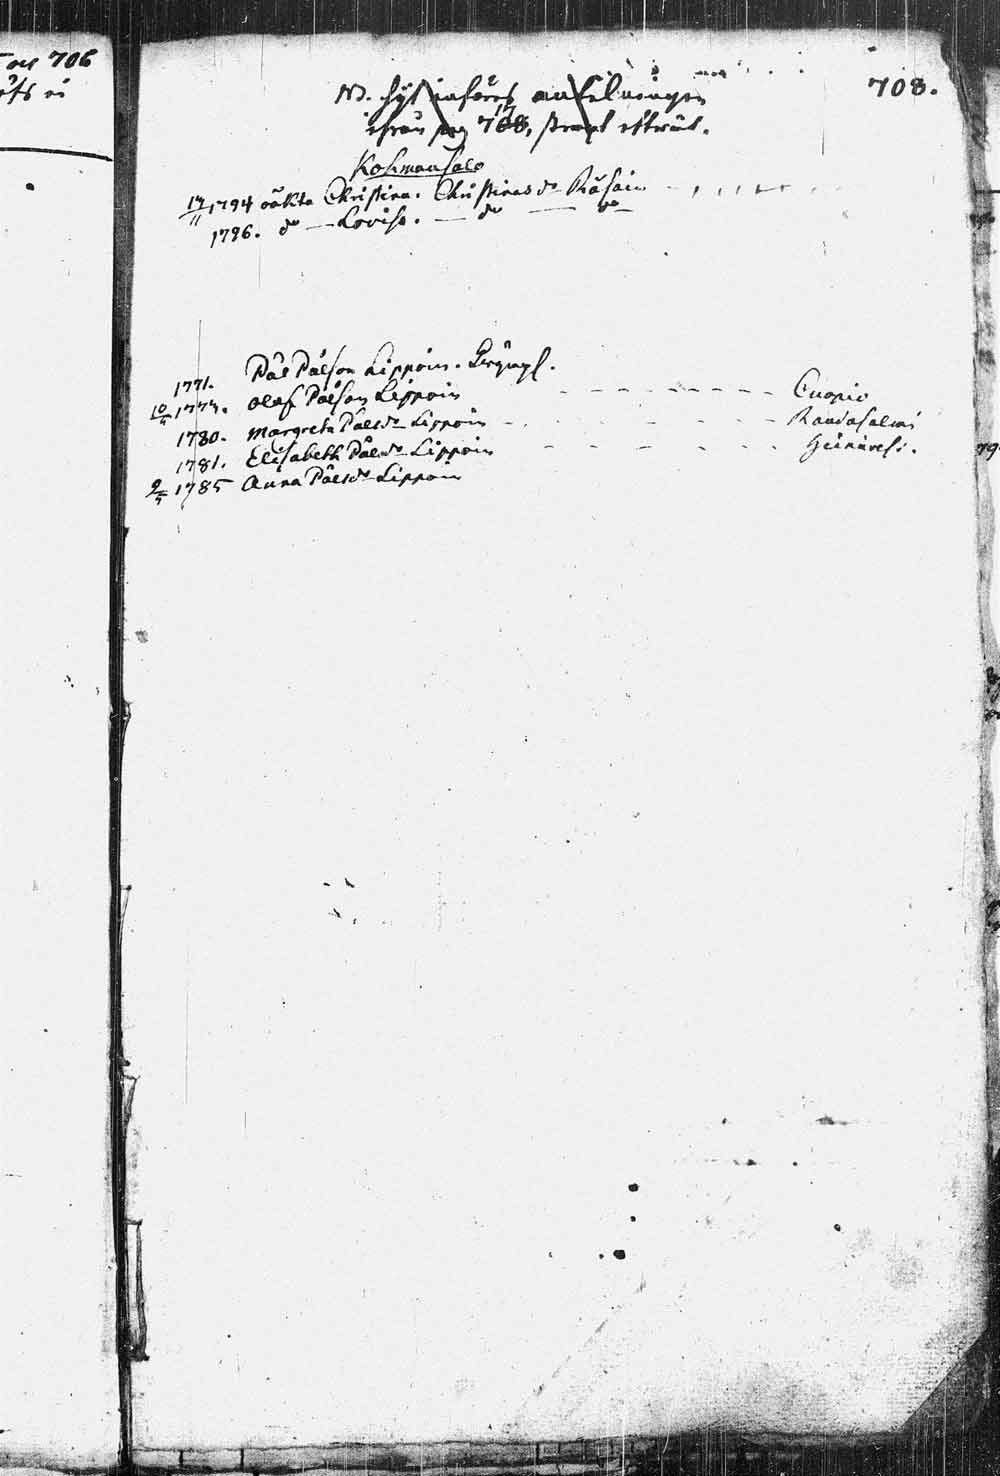 706
708.
NB. införes
ifrån pag 708,
Kohmansalo
17/11 1794 oäkta Christina. Christinas dr Räsäin
1796. do — Lovisa. — do — do
1771. Pål Pålson Lippoin.
10/4 1777. Olof Pålson Lippoin - - - - - - - Cuopio
1780. Margreta Pålsdr Lippoin - - - - - - - Randasalmi
1781. Elisabeth Pålsdr Lippoin - - - - - Heinävesi.
9/5 1785 Anna Pålsdr Lippoin